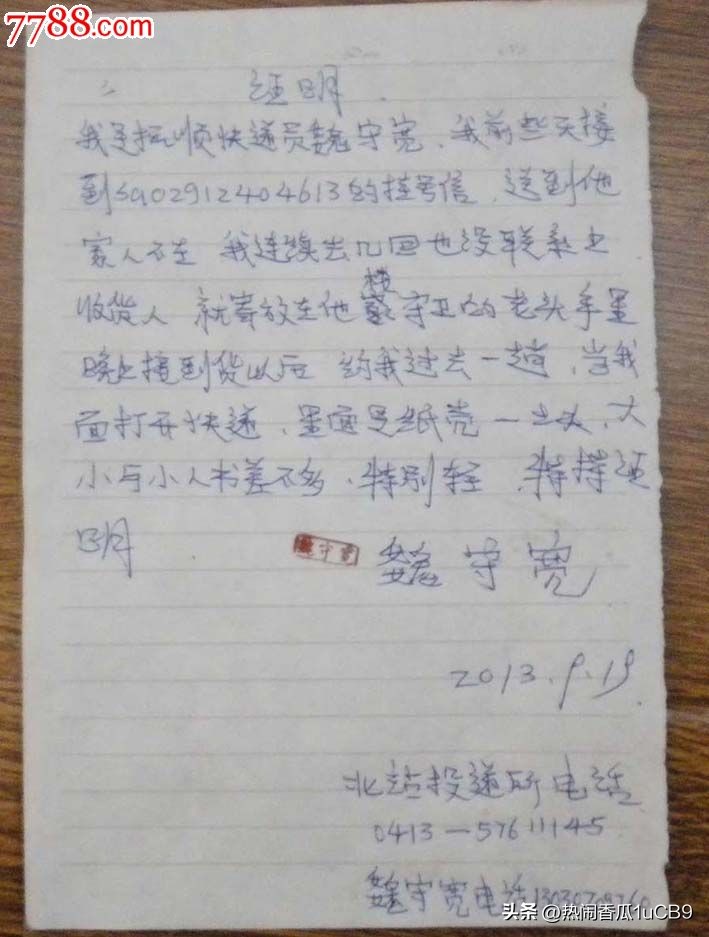 7788.com
证明
我是抚顺快递员魏守宽、我前些天接
到SA02912404613的挂号信、送到他
家人不在 我连续去几回也没联系上
收货人 就寄放在他楼守卫的老头手里
晚上接到货以后 约我过去一趟、当我
面打开快递、里面是纸壳一上头、大
小与小人书差不多、特别轻、特持证
明
魏守宽
魏守宽
2013.9.19
北站投递所电话
0413-57611145
魏守宽电话
头条 @热闹香瓜1uCB9